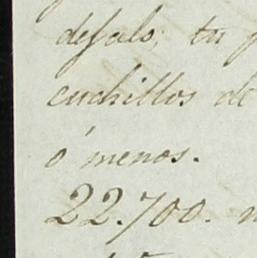 defalo, tu
cuchillos de
ó menos.
22.700.